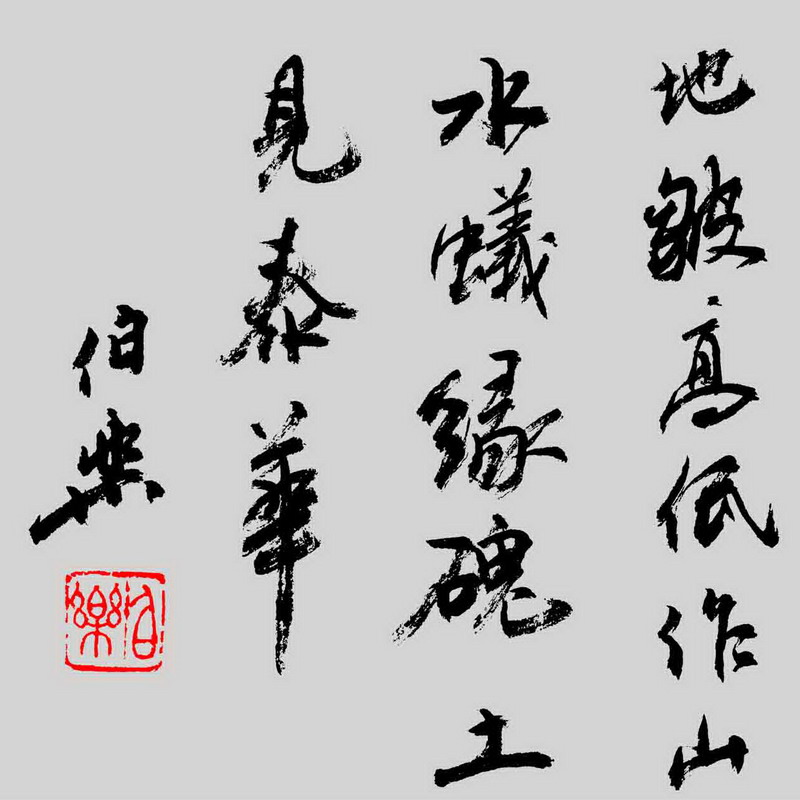 地皺高低作山
水蟻緣磈土
見泰華
伯樂
伯樂